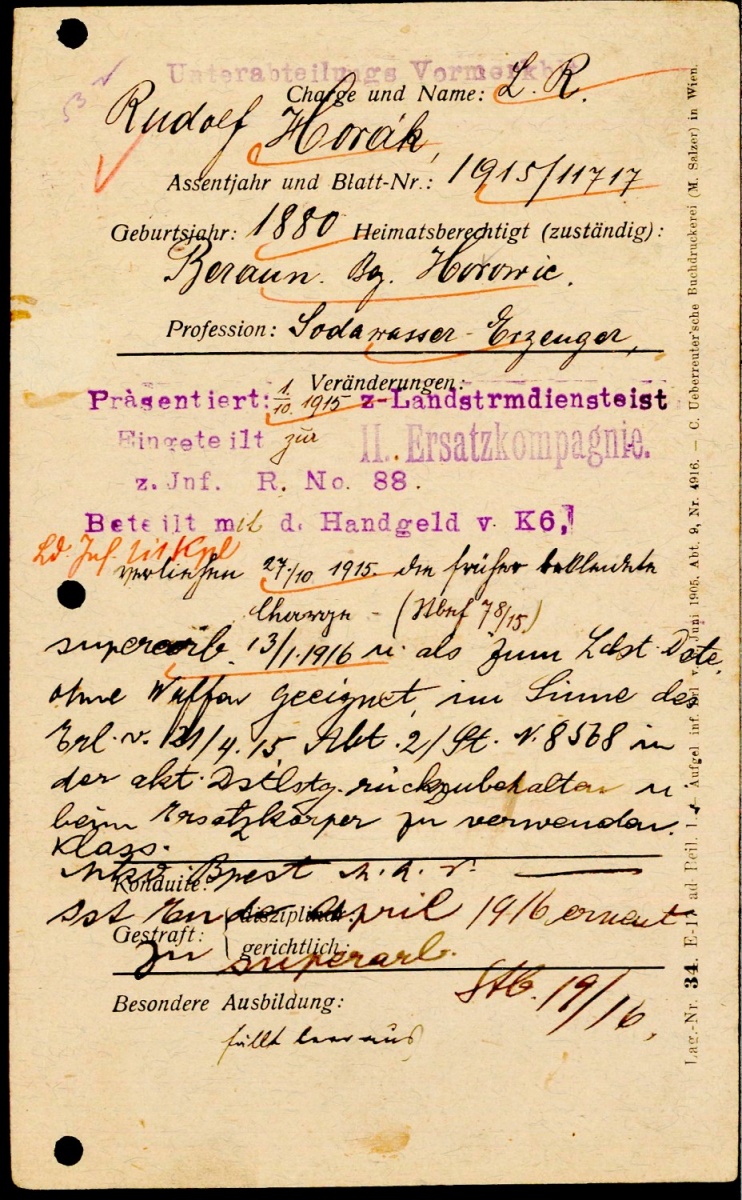 Unterabteilungs Vormerkbl
53
Charge und Name: L. R.
Rudolf Horák,
Assentjahr und Blatt-Nr.: 1915/11717
Geburtsjahr: 1880 Heimatsberechtigt (zuständig):
Beraun. Bz. Horowic.
Profession: Sodawasser-Erzeuger,
Veränderungen:
Präsentiert: 1/10. 1915 z-Landstrmdiensteist
Eingeteilt zur II. Ersatzkompagnie.
z. Jnf. R. No. 88.
Beteilt mit d. Handgeld v. K6,
Ld. Jnf. tit Kpl
verliehen 27./10 1915. die früher bekleidete
Charge - ( 78/15)
superarb. 13/1.1916 u. als zum Ldst. Dste.
ohne Waffen geeignet, im Sinne des
Erl. v. 21/4.15, Abt. 2/St. N. 8568 in
der akt. Dstlstg. rückzubehalten u.
beim Ersatzkörper zu verwenden.
Klass.
Bpest
Konduite:
ist Ende April 1916 erneut
Gestraft: disziplinär:
gerichtlich:
zu superarb.
Stb. 19/16.
Besondere Ausbildung:
füllt leer aus
Lag.-Nr. 34. E-17 ad Beil. 1. Aufgel. inf. Erl. v. Juni 1905. Abt. 9, Nr. 4916. — C. Ueberreuter'sche Buchdruckerei (M. Salzer) in Wien.